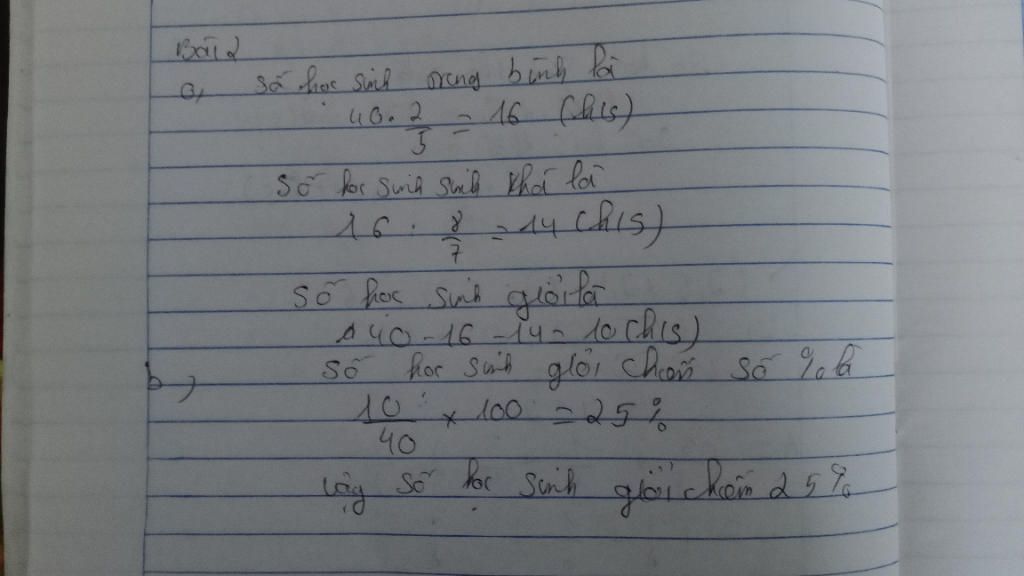 Bài 2
a, Số học sinh trung bình là
40 . 2/5 = 16 (h/s)
Số học sinh sinh khá là
16 . 8/7 = 14 (h/s)
Số học sinh giỏi là
40 - 16 - 14 = 10 (h/s)
b, Số học sinh giỏi chiếm số % là
10/40 × 100 = 25 %
Vậy số học sinh giỏi chiếm 25%